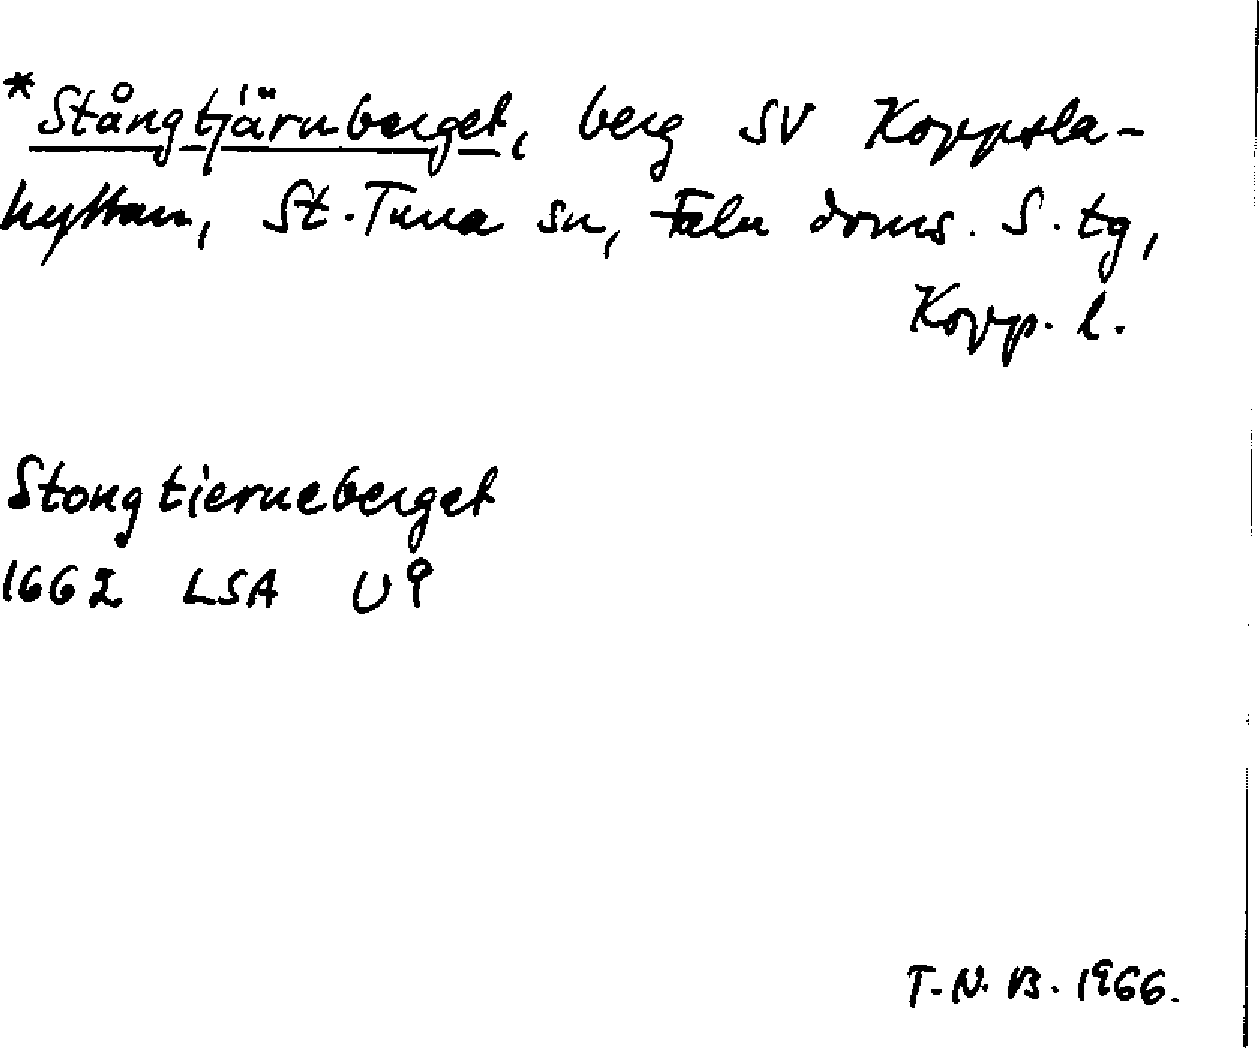 *Stångtjärnberget, berg SV Koppsla-
hyttan, St. Tuna sn, Falu doms. S. tg,
Kopp. l.
Stongtierneberget
1662 LSA U9
T.N.B. 1966.